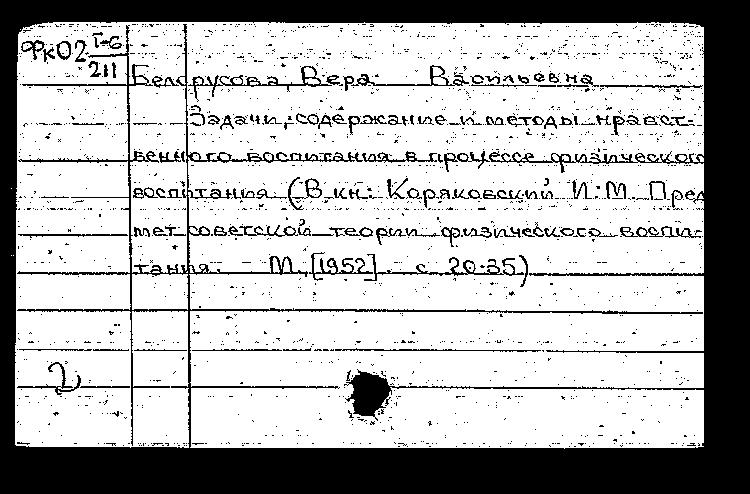 ФкО2 Т-6
211
Белорусова, Вера Васильевна
Задачи, содержание и методы нравст-
венного воспитания в процессе физического
воспитания (В кн: Коряковский И.М. Пред
мет советской теории физического воспи-
тания. М., [1952]. с. 20-35)
2